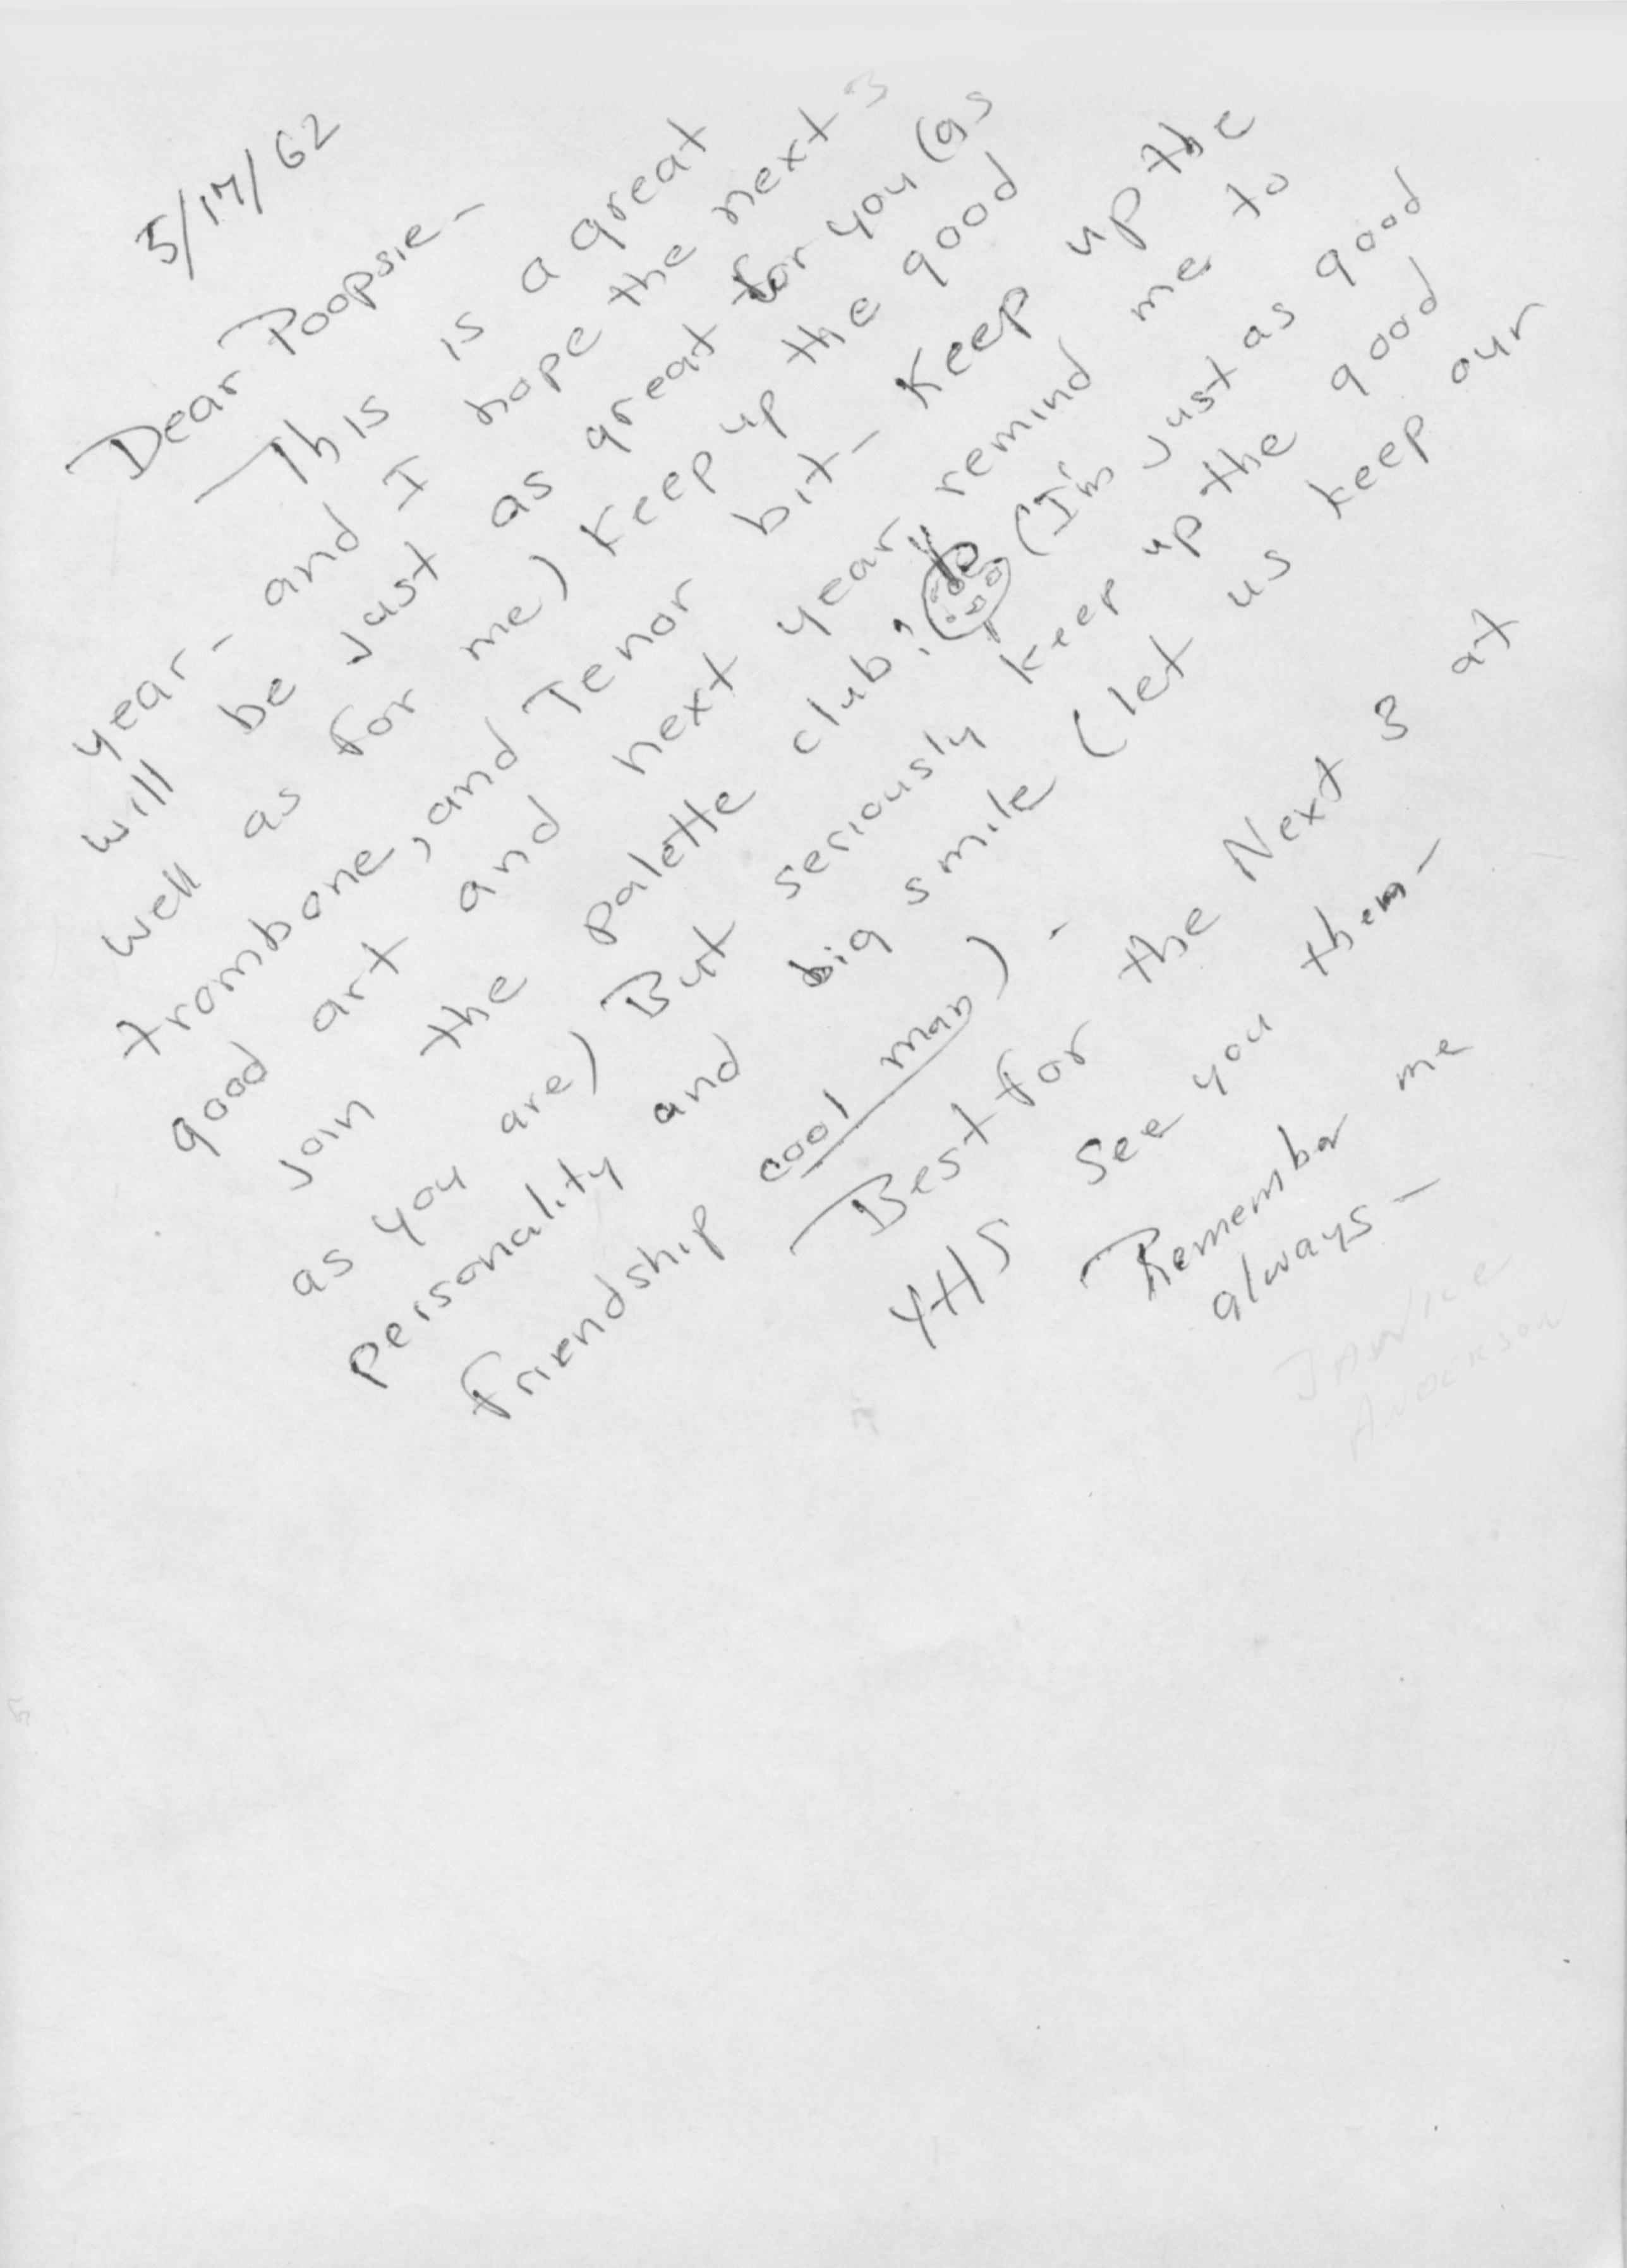 5/17/62
Dear Poopsie-
This is a great
year- and I hope the next 3
will be just as great for you (as
well as for me) Keep up the good
trombone, and Tenor bit- Keep up the
good art and next year remind me to
join the palette club; (I'm just as good
as you are) But seriously keep up the good
personality and big smile (let us keep our
friendship cool man)-
Best for the Next 3 at
YHS See you then-
Remember me
always-
JANICE
ANDERSON